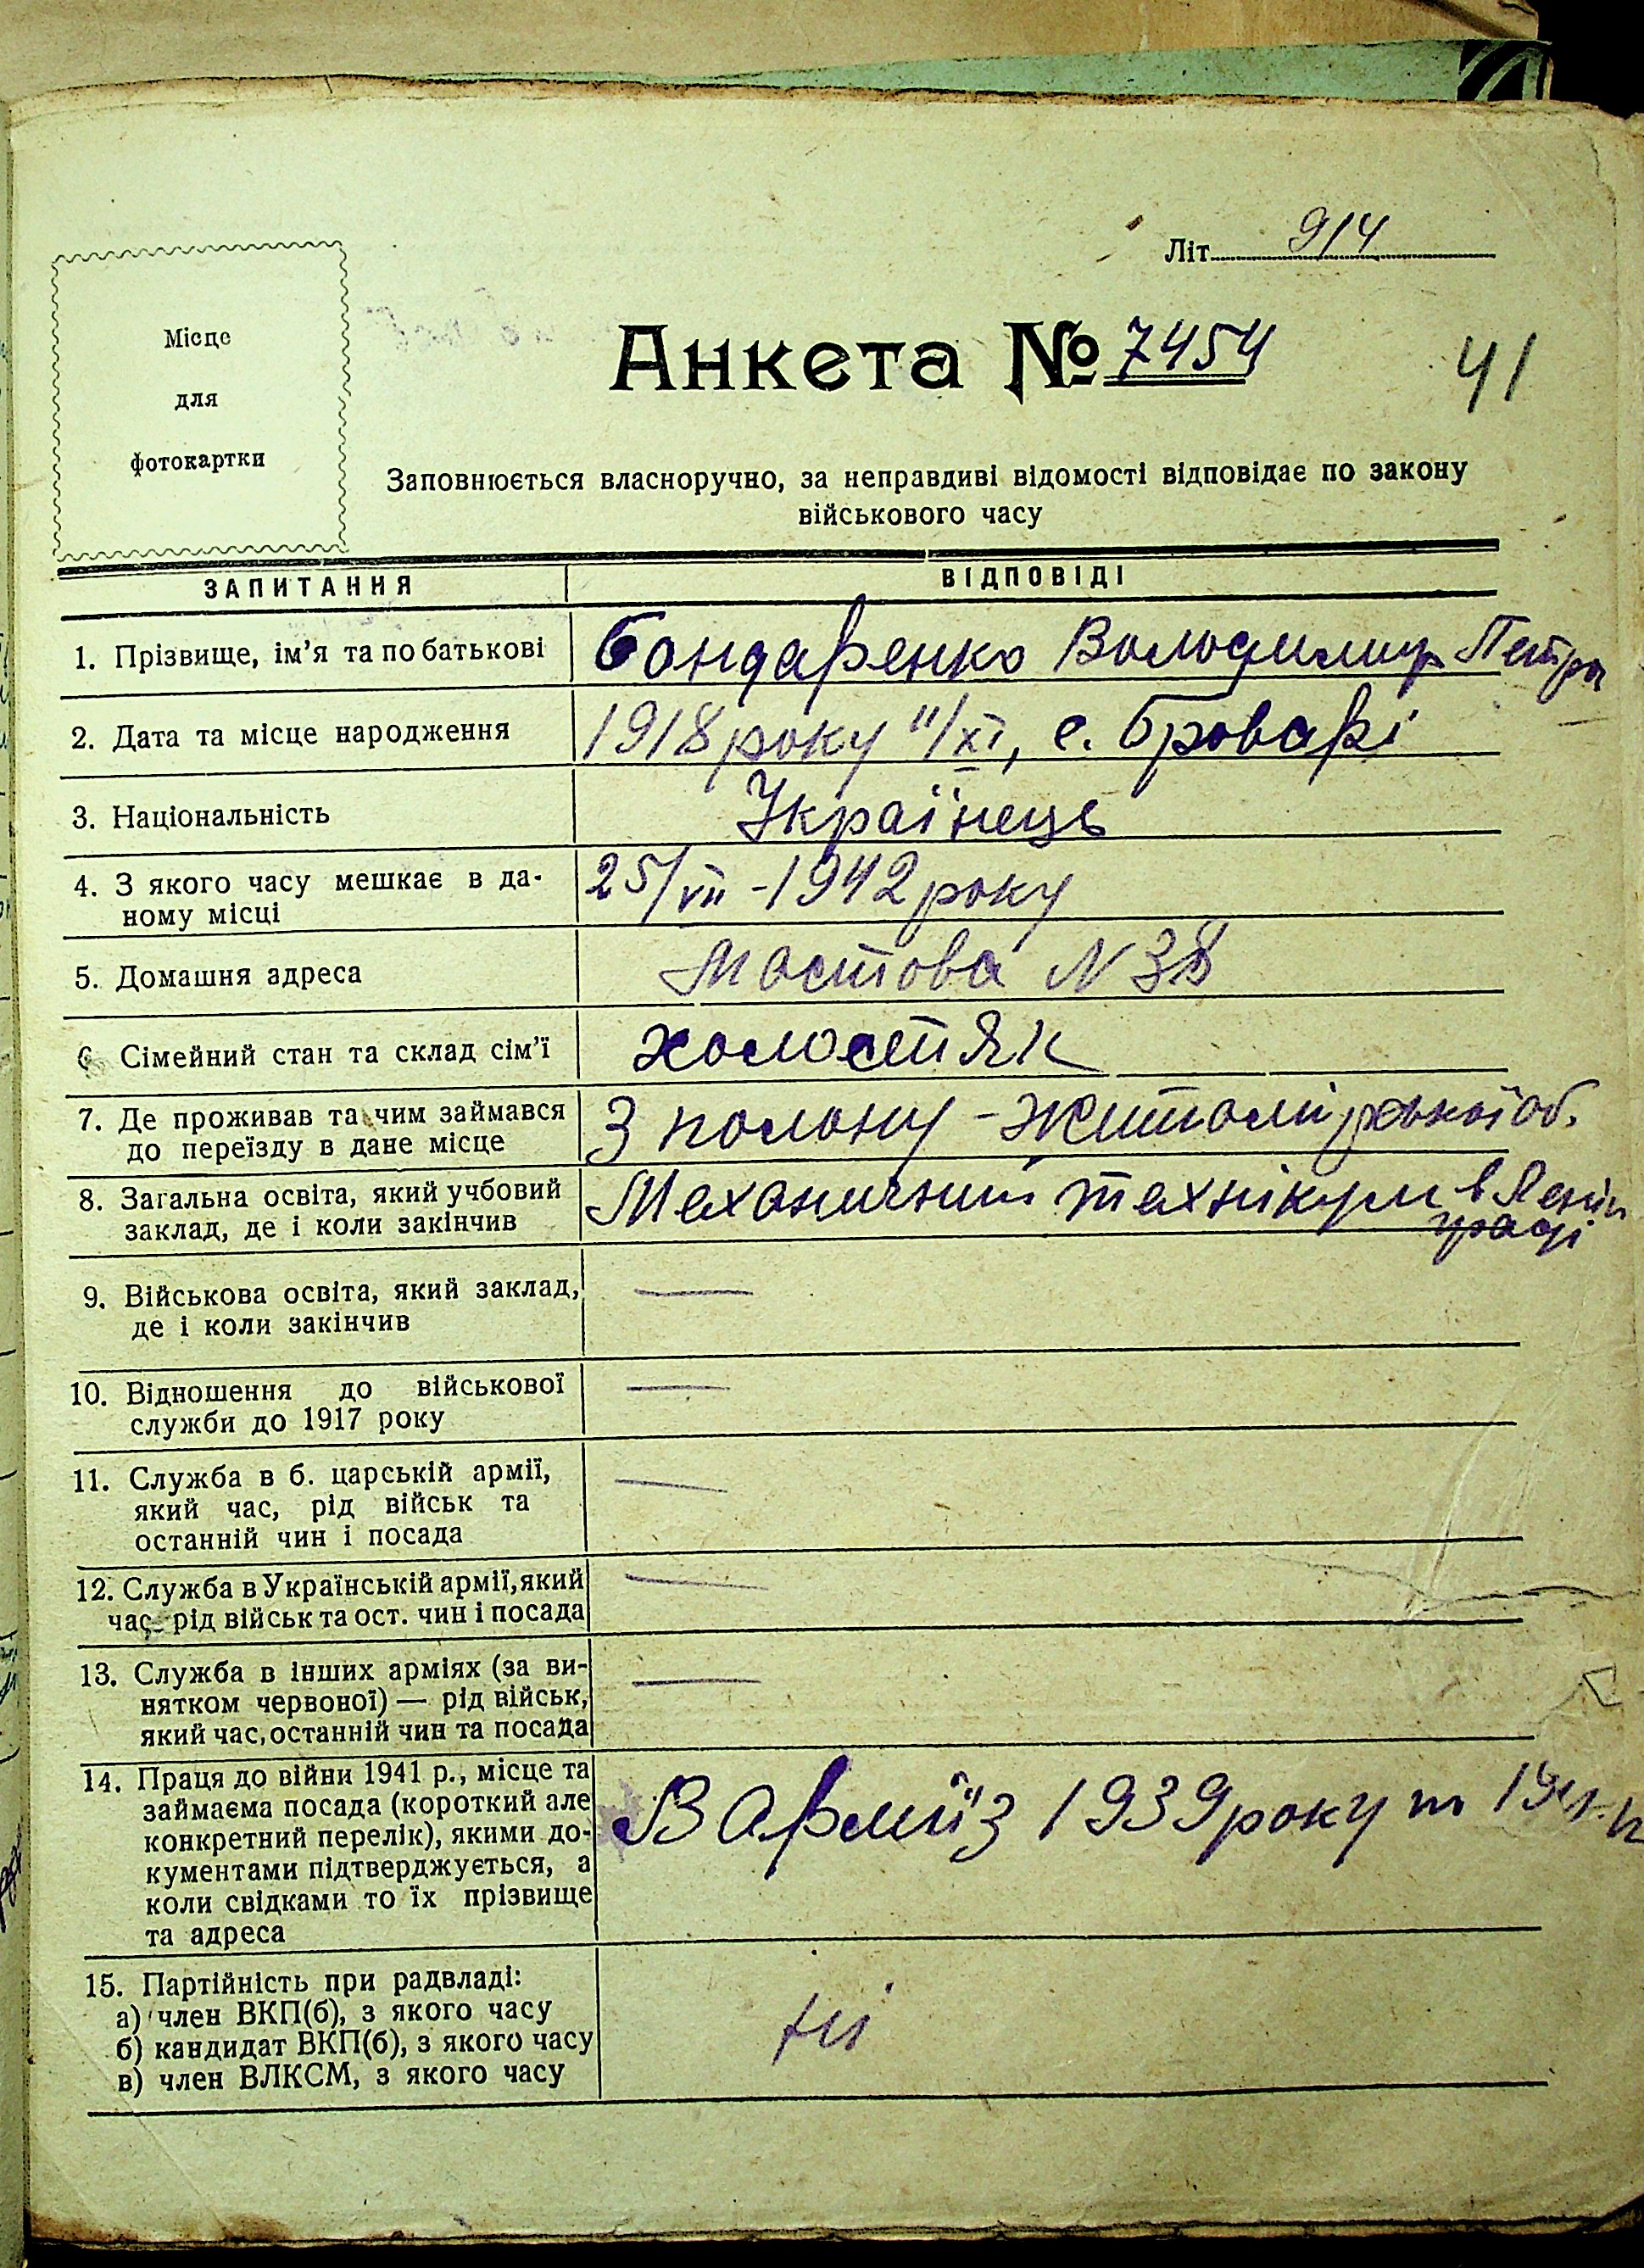 Літ. 914
Місце
для
фотокартки
Анкета № 7454
41
Заповнюється власноручно, за неправдиві відомості відповідає по закону
військового часу
ЗАПИТАННЯ ВІДПОВІДІ
1. Прізвище, ім'я та по батькові Бондаренко Володимир Петро
2. Дата та місце народження 1918 року 11/XI, с. Броварі
3. Національність Українець
4. З якого часу мешкає в да- 25/VII - 1942 року
ному місці
5. Домашня адреса Мостова N 38
6 Сімейний стан та склад сім'ї холостяк
7. Де проживав та чим займався З полону - Житомірської об.
до переїзду в дане місце
8. Загальна освіта, який учбовий Механичний технікум в Ленін
заклад, де і коли закінчив граді
9. Військова освіта, який заклад, —
де і коли закінчив
10. Відношення до військової —
служби до 1917 року
11. Служба в б. царській армії, —
який час, рід військ та
останній чин і посада
12. Служба в Українській армії, який —
час рід військ та ост. чин і посада
13. Служба в інших арміях (за ви- —
нятком червоної) — рід військ,
який час, останній чин та посада
14. Праця до війни 1941 р., місце та
займаєма посада (короткий але
конкретний перелік), якими до- В армії з 1939 року
кументами підтверджується, а
коли свідками то їх прізвище
та адреса
15. Партійність при радвладі:
а) член ВКП(б), з якого часу
б) кандидат ВКП(б), з якого часу ні
в) член ВЛКСМ, з якого часу